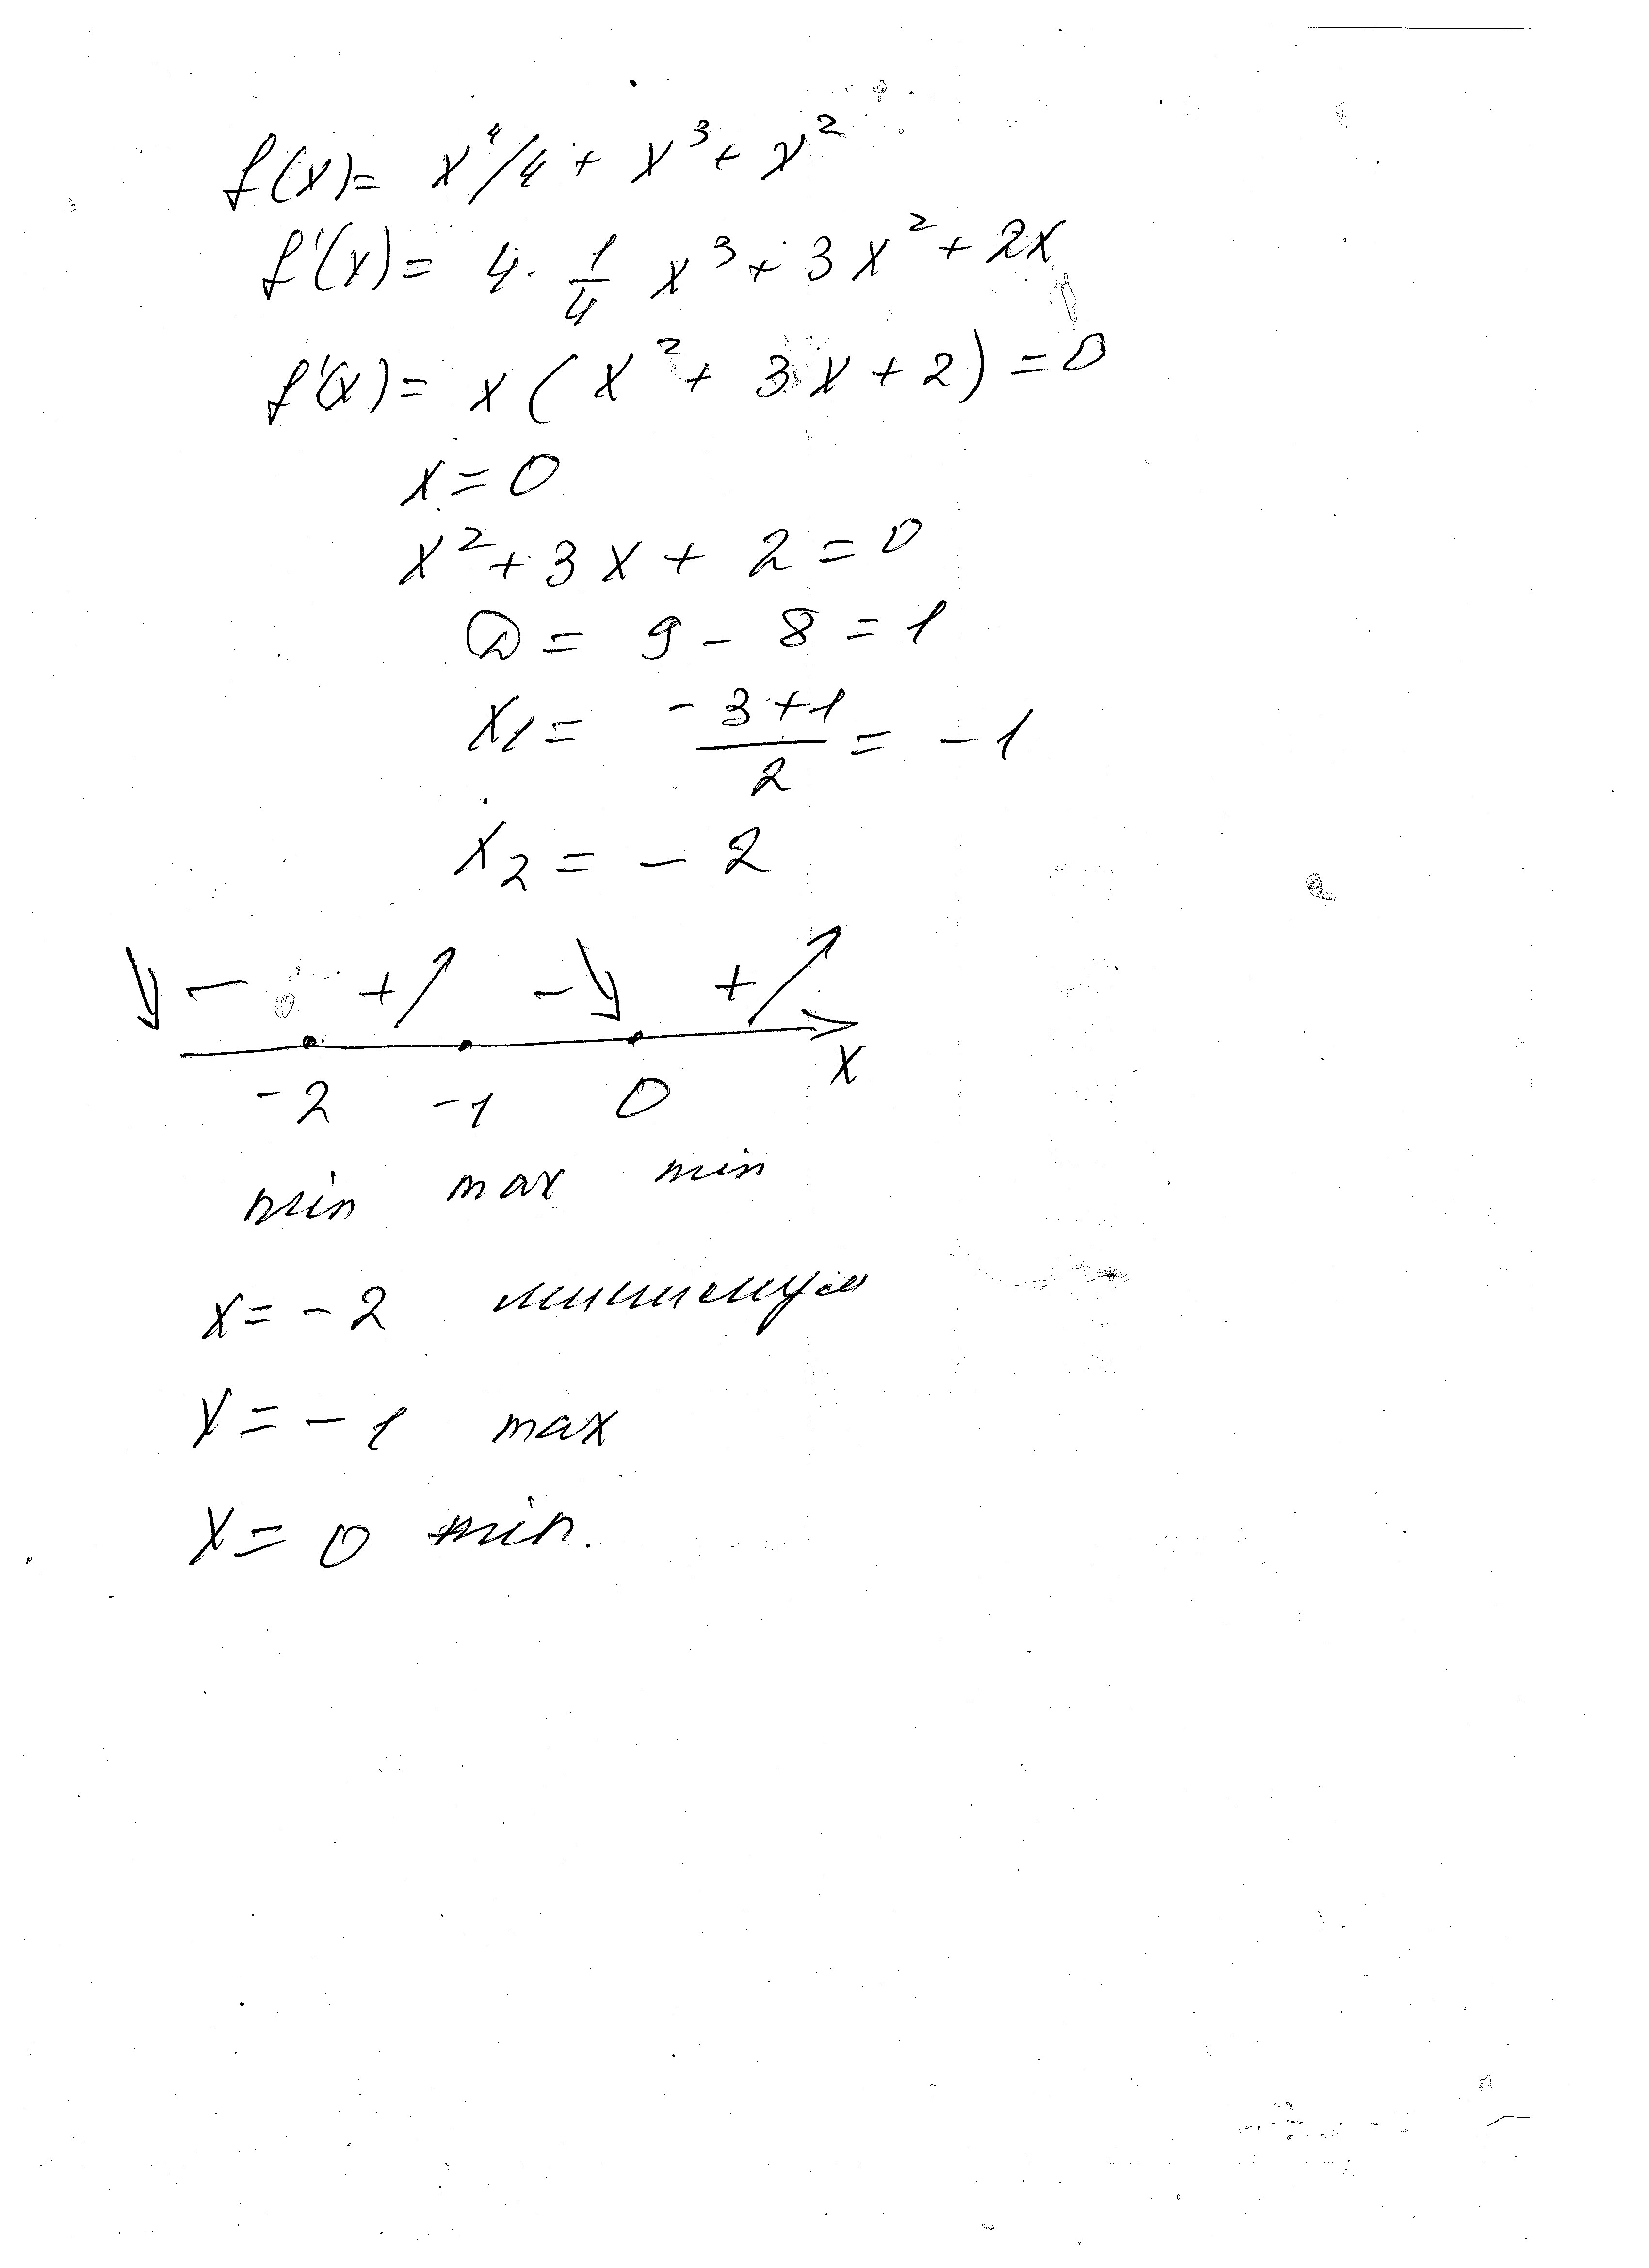 f(x)= x⁴/4 + x³ + x²
f'(x)= 4 · 1/4 x³ + 3x² + 2x
f'(x)= x(x² + 3x + 2) = 0
x = 0
x² + 3x + 2 = 0
D = 9 - 8 = 1
x1 = (-3+1)/2 = -1
x2 = - 2
↓ - + ↗ - ↘ + ↗
-2 -1 0 x
min max min
x = -2 минимум
x = -1 max
x = 0 min.